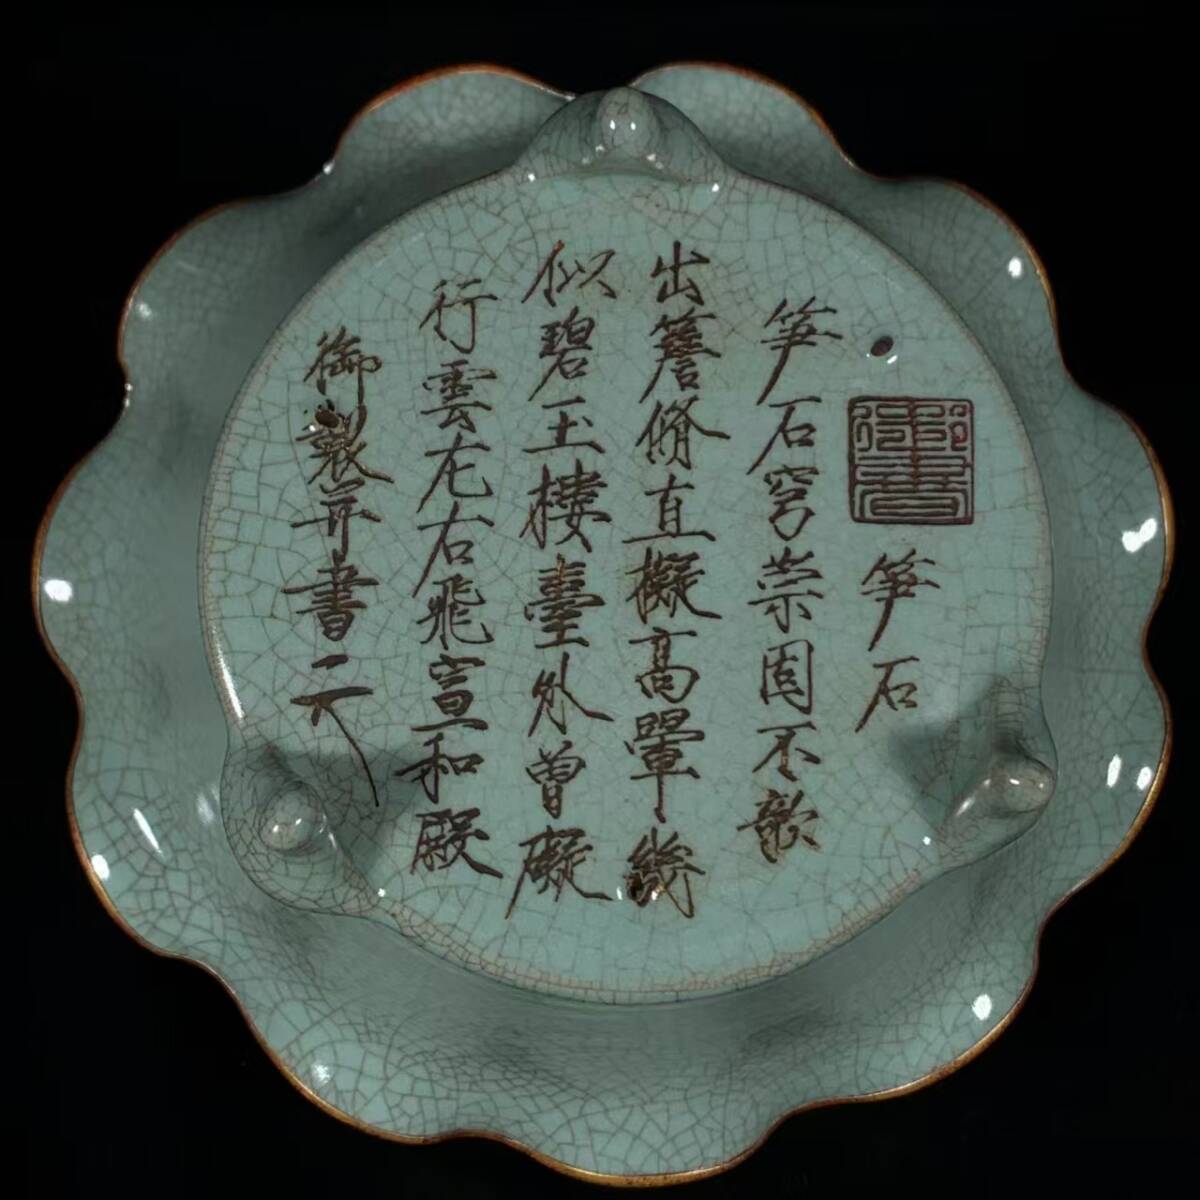 御書
筍石
筍石穹崇固不欹
出簷脩直擬高翬幾
似碧玉樓臺外曾礙
行雲左右飛宣和殿
御製并書